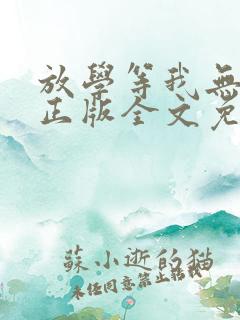 放學等我無
正版全文免
蘇小逝的猫
未经同意禁止转载